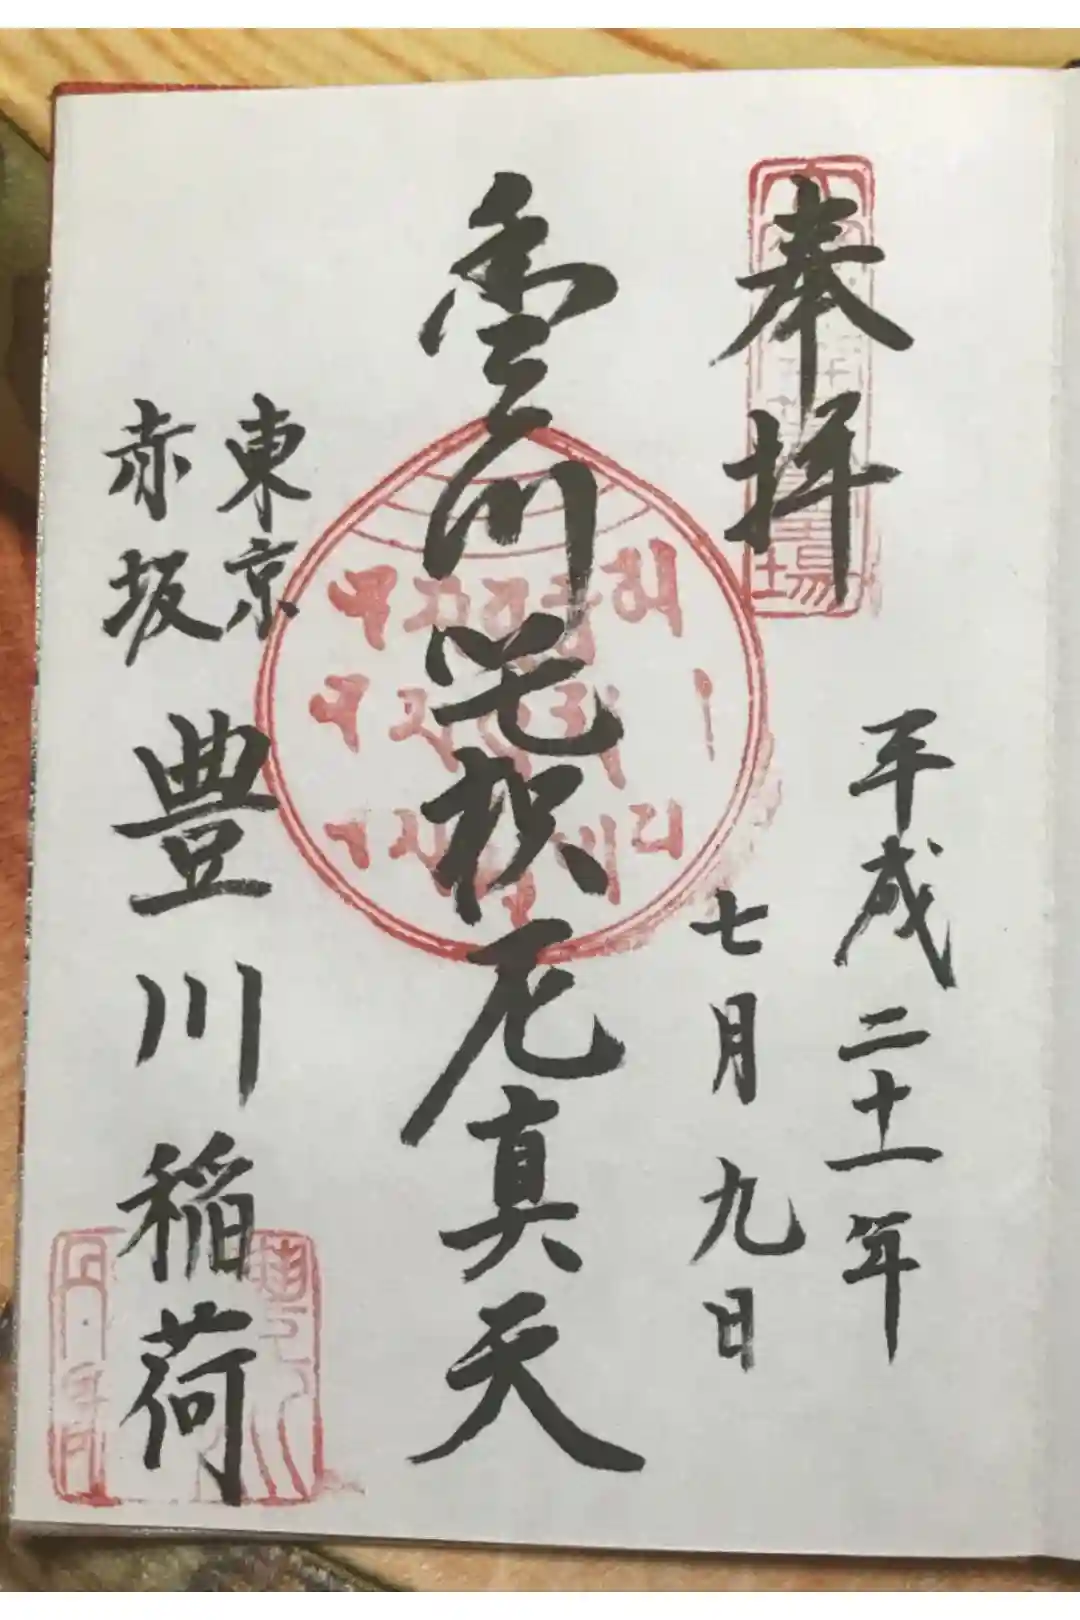 奉拝
平成二十一年
七月九日
豊川吒枳尼真天
東京
赤坂
豊川稲荷